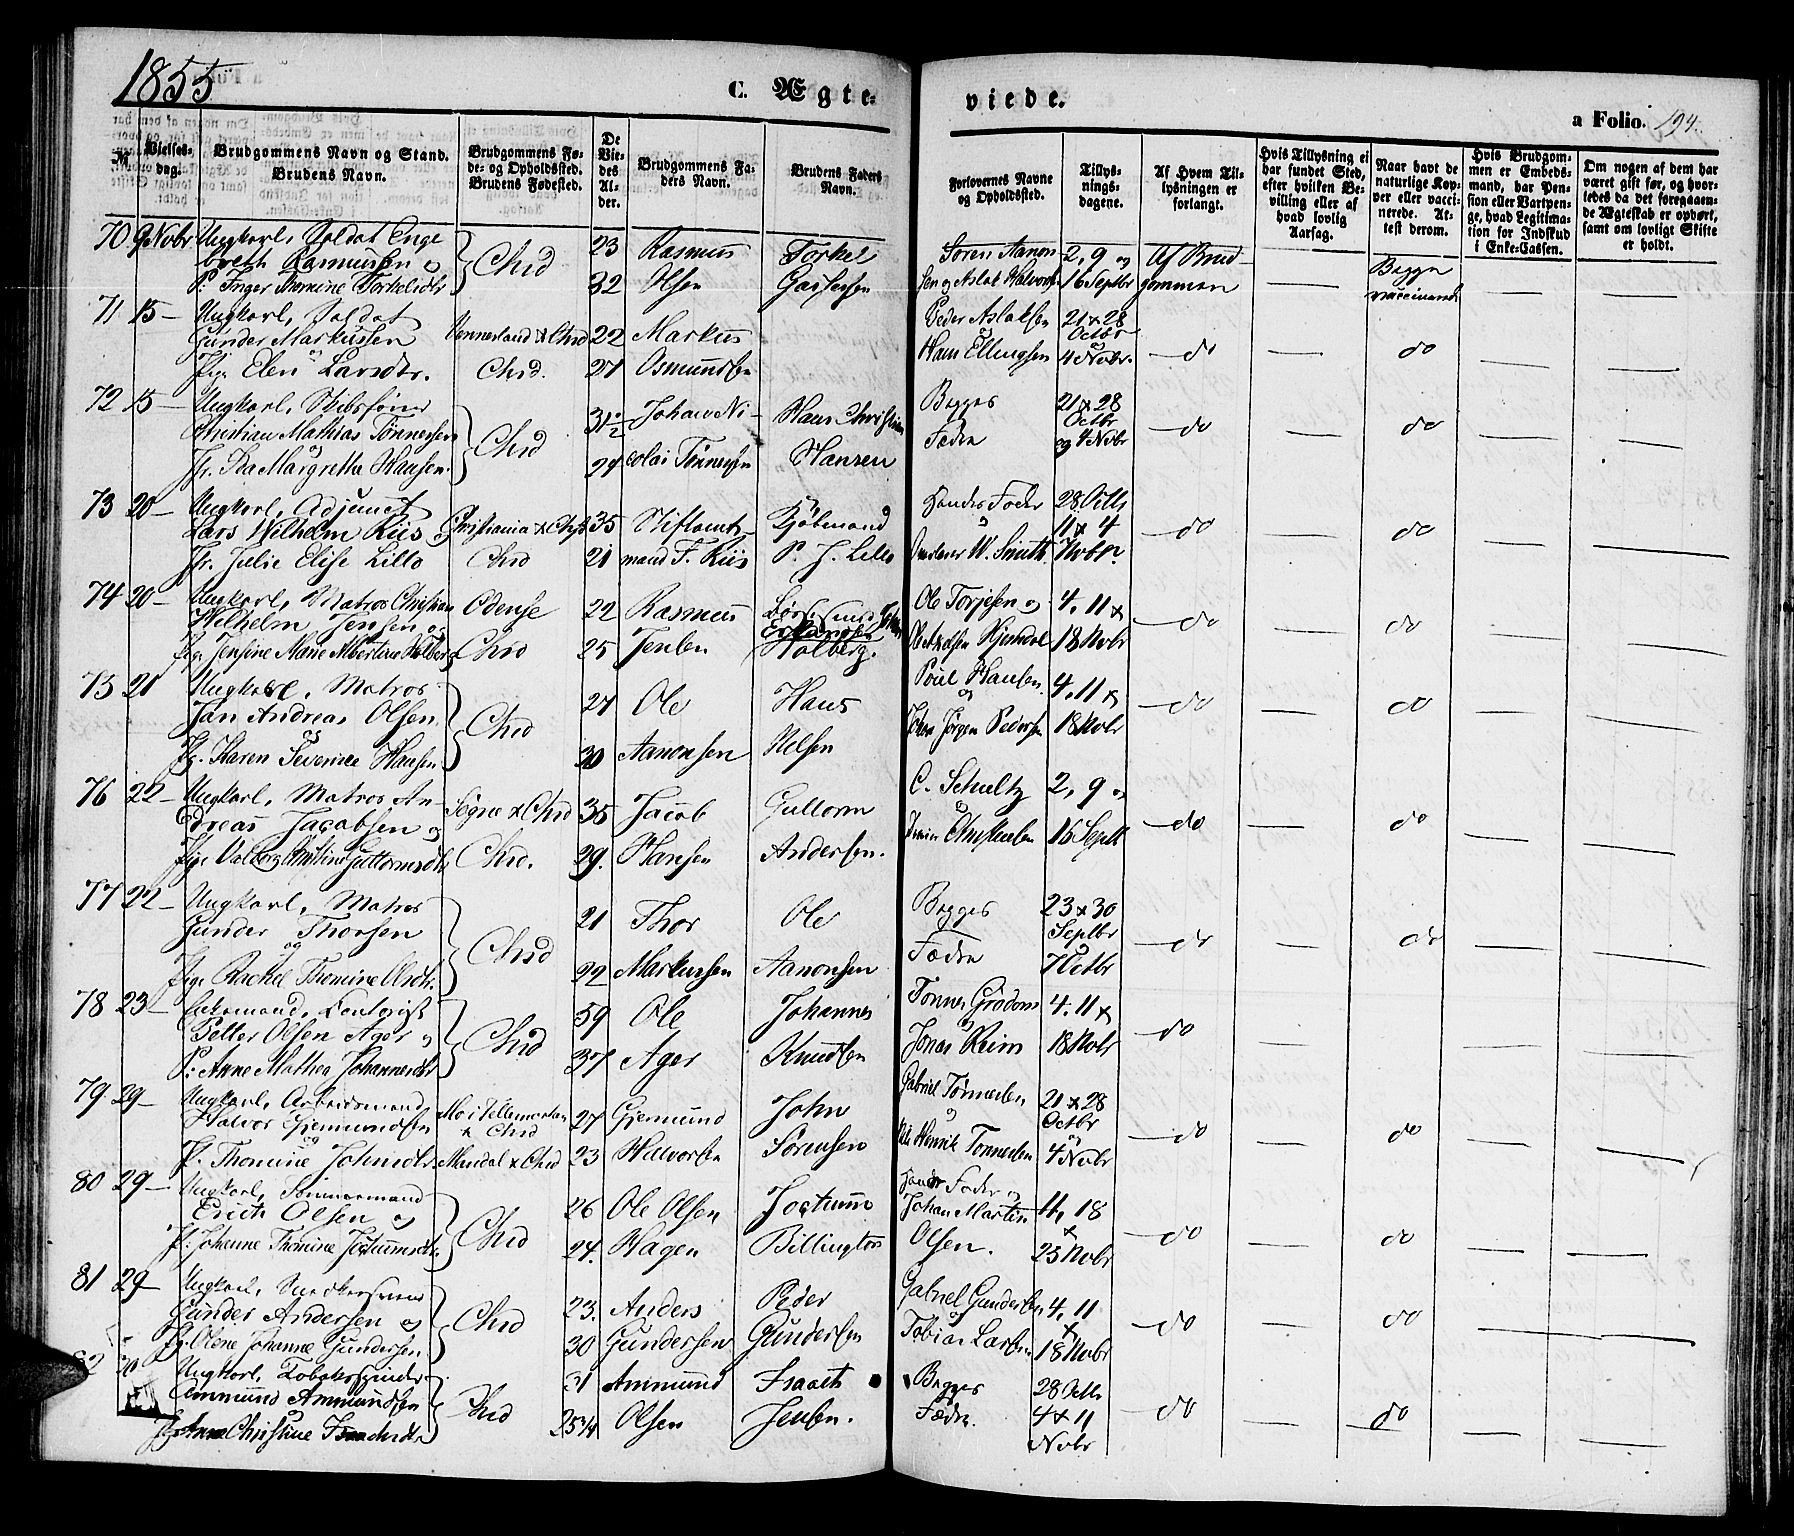 1855
C. Ægte-
viede.
a Folio. 194.
№
Vielses-
dag.
Brudgommens Navn og Stand.
Brudens Navn.
Brudgommens Fø-
de- og Opholdssted.
Brudens Fødested.
De
Vie-
des
Al-
der.
Brudgommens Fa-
ders Navn.
Brudens Faders
Navn.
Forlovernes Navne
og Opholdssted.
Tillys-
nings-
dagene.
Af Hvem Til-
lysningen er
forlangt.
Hvis Tillysning ei
har fundet Sted,
efter hvilken Be-
villing eller af
hvad lovlig
Aarsag.
Naar havt de
naturlige Kop-
per eller vacci-
nerede. At-
test derom.
Hvis Brudgom-
men er Embeds-
mand, har Pen-
sion eller Vartpen-
ge, hvad Legitima-
tion for Indskud
i Enke-Cassen.
Om nogen af dem har
været gift før, og hvor-
ledes da det foregaaen-
de Ægteskab er ophørt,
samt om lovligt Skifte
er holdt.
70 9 Novbr Ungkarl, Soldat Enge
breth Rasmussen og
P: Inger Thomine Torkelsdtr
Chrd
23 Rasmus Torkel
32 Olsen
Søren Aanon
sen og Aslak Halvors
2, 9 og
16 Septbr
Af Brud-
gommen
Begge
vaccinerede
71 15 — Ungkarl, Soldat
Gunder Markussen
og
Pig. Elen Larsdtr.
Vennesland & Chrd
Chrd.
22 Markus
27 Osmundsen
Peder Aslaksen
og
Hans Ellingsen
21 & 28
Octbr
og
4 Novbr.
do do
72 15 — Ungkarl, Skibsfører
Christian Mathias Tønnessen
og
Jfr. Ida Margrethe Hansen.
Chrd
31½ Johan Ni-
24 colai Tønnessen
Hans Christian
Hansen
Begges
Fædre
21 & 28
Octbr
og 4 Novbr
do do
73 20 — Ungkarl, Adjunct
Lars Wilhelm Riis og
Jfr. Julie Elise Lillo
Christiania & Chrd
Chrd
35 Stiftamt-
21 mand F. Riis
Kjøbmand
P. J. Lillo
Hendes Fader
og
W. Smith
28 Octb
11 & 4
Novbr
do do
74 20 — Ungkarl, Matros Christian
Wilhelm Jensen og
Pig. Jensine Marie Albertine Holberg
Odense
Chrd
22 Rasmus
25 Jensen
Holberg.
Ole Torjesen og
Hjemdal
4, 11 &
18 Novbr
do do
75 21 Ungkarl, Matros
Jan Andreas Olsen
og
Pg. Karen Severine Hansen
Chrd
27 Ole Hans
30 Aanonsen Nelsen
Poul Hansen
og
Jørgen Pedersen
4, 11 &
18 Novbr
do do
76 22 — Ungkarl, Matros An-
dreas Jacobsen og
Pige Valborg Guttormsdtr
Søgne & Chrd
Chrd.
35 Jacob Guttorm
29. Hansen Andersen.
C. Schultz
og
Christensen
2, 9 og
16 Septb
do do
77 22 — Ungkarl, Matros
Gunder Thorsen
og
Pige Rachel Thomine Olsdtr.
Chrd
21 Thor Ole
22 Markussen Aanonsen
Begges
Fædre
23 & 30
Septbr
7 Octbr
do do
78 23 — Enkemand,
Petter Olsen Ager og
P: Anne Mathea Johannesdtr
Chrd
59 Ole Johannes
37 Ager Knudsen
Tønnes Grødom
og
Jonas Reim
4. 11 &
18 Novbr
do
79. 29 — Ungkarl, Arbeidsmand
Halvor Gjemundsen
og
P. Thomine Johnsdtr
Mo i Tellemarken
& Chrd
Mandal & Chrd
27 Gjemund John
23 Halvorsen Sørensen
Gabriel Tønnesen
og
Henrik Tønnesen
21 & 28
Octbr
og
4 Novbr
do do
80 29 — Ungkarl, Tømmermand
Erich Olsen og
P: Johanne Thomine Jochumsdtr.
Chrd
26 Ole Olsen Jochum
24. Hagen Billington
Hendes Fader og
Johan Martin
Olsen.
11, 18
&
25 Novbr
do do
81 29 — Ungkarl, Snedkersvend
Gunder Andersen og
Pg. Olene Johanne Gundersen
Chrd
23. Anders Peder
30 Gundersen Gundersen
Gabriel Gundersen
og
Tobias Larsen
4, 11
&
18 Novbr
do do
82 30 Ungkarl, Tobaksspinder
Ammund Ammundsen
Anne Christine Isaachsdtr
Chrd
31 Ammund Isaach
25¾ Olsen Jensen.
Begges
Fædre.
28 Octb
4 & 11
Novbr
do do